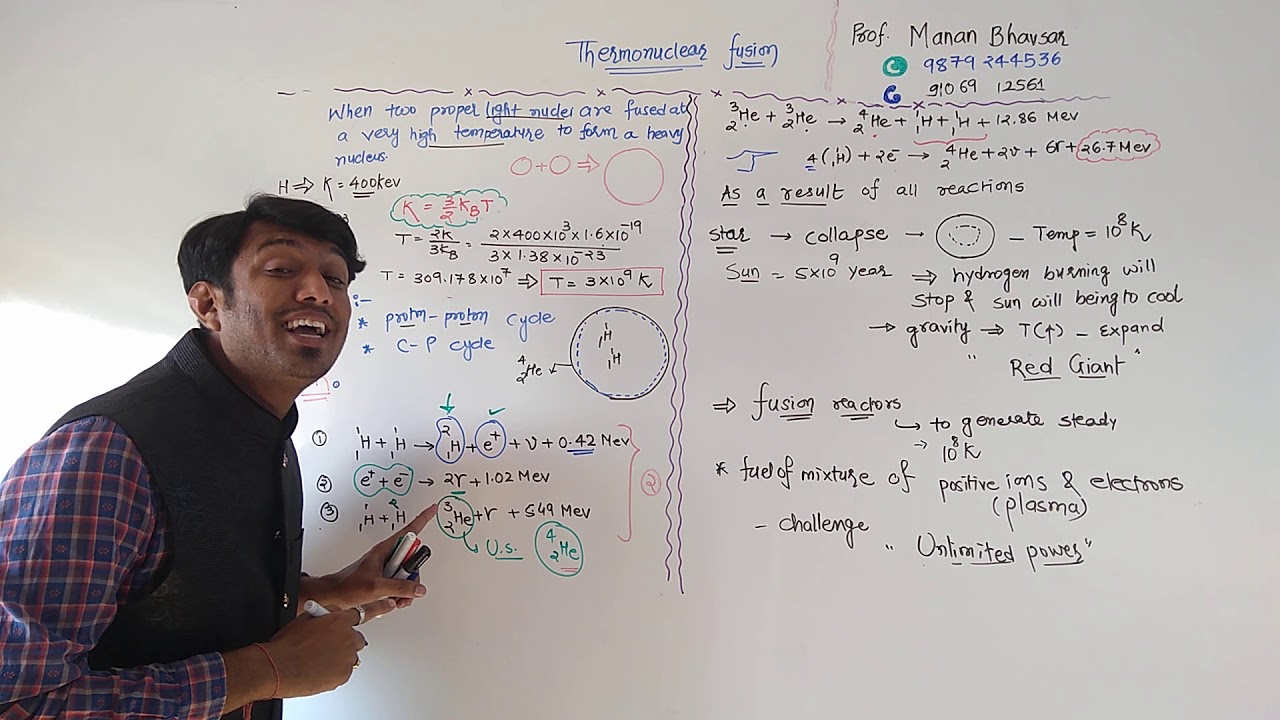 Thermonuclear fusion
Prof. Manan Bhavsar
9879 244536
91069 12561
When two proper light nuclei are fused at
a very high temperature to form a heavy
nucleus.
○ + ○ ⇒ ○
H ⇒ K = 400kev
K = 3/2 K_B T
T = 2K/3K_B = 2×400×10³×1.6×10⁻¹⁹/3×1.38×10⁻²³
T = 309.178×10⁷ ⇒ T = 3×10⁹ K
:-
* proton-proton cycle
* C-P cycle
¹₁H
¹₁H
⁴₂He
① ¹₁H + ¹₁H → ²₁H + e⁺ + ν + 0.42 Mev
② e⁺ + e⁻ → 2r + 1.02 Mev
③ ¹₁H + ²₁H ³₂He + r + 5.49 Mev
②
U.s. ⁴₂He
³₂He + ³₂He → ⁴₂He + ¹₁H + ¹₁H + 12.86 Mev
4(¹₁H) + 2e⁻ → ⁴₂He + 2ν + 6r + 26.7 Mev
As a result of all reactions
star → collapse → – Temp = 10⁸ K
Sun = 5×10⁹ year ⇒ hydrogen burning will
stop & sun will being to cool
→ gravity ⇒ T(↑) – Expand
" Red Giant "
⇒ fusion reactors
↳ to generate steady
→ 10⁸ K
* fuel of mixture of positive ions & electrons
(plasma)
– challenge
" Unlimited power "